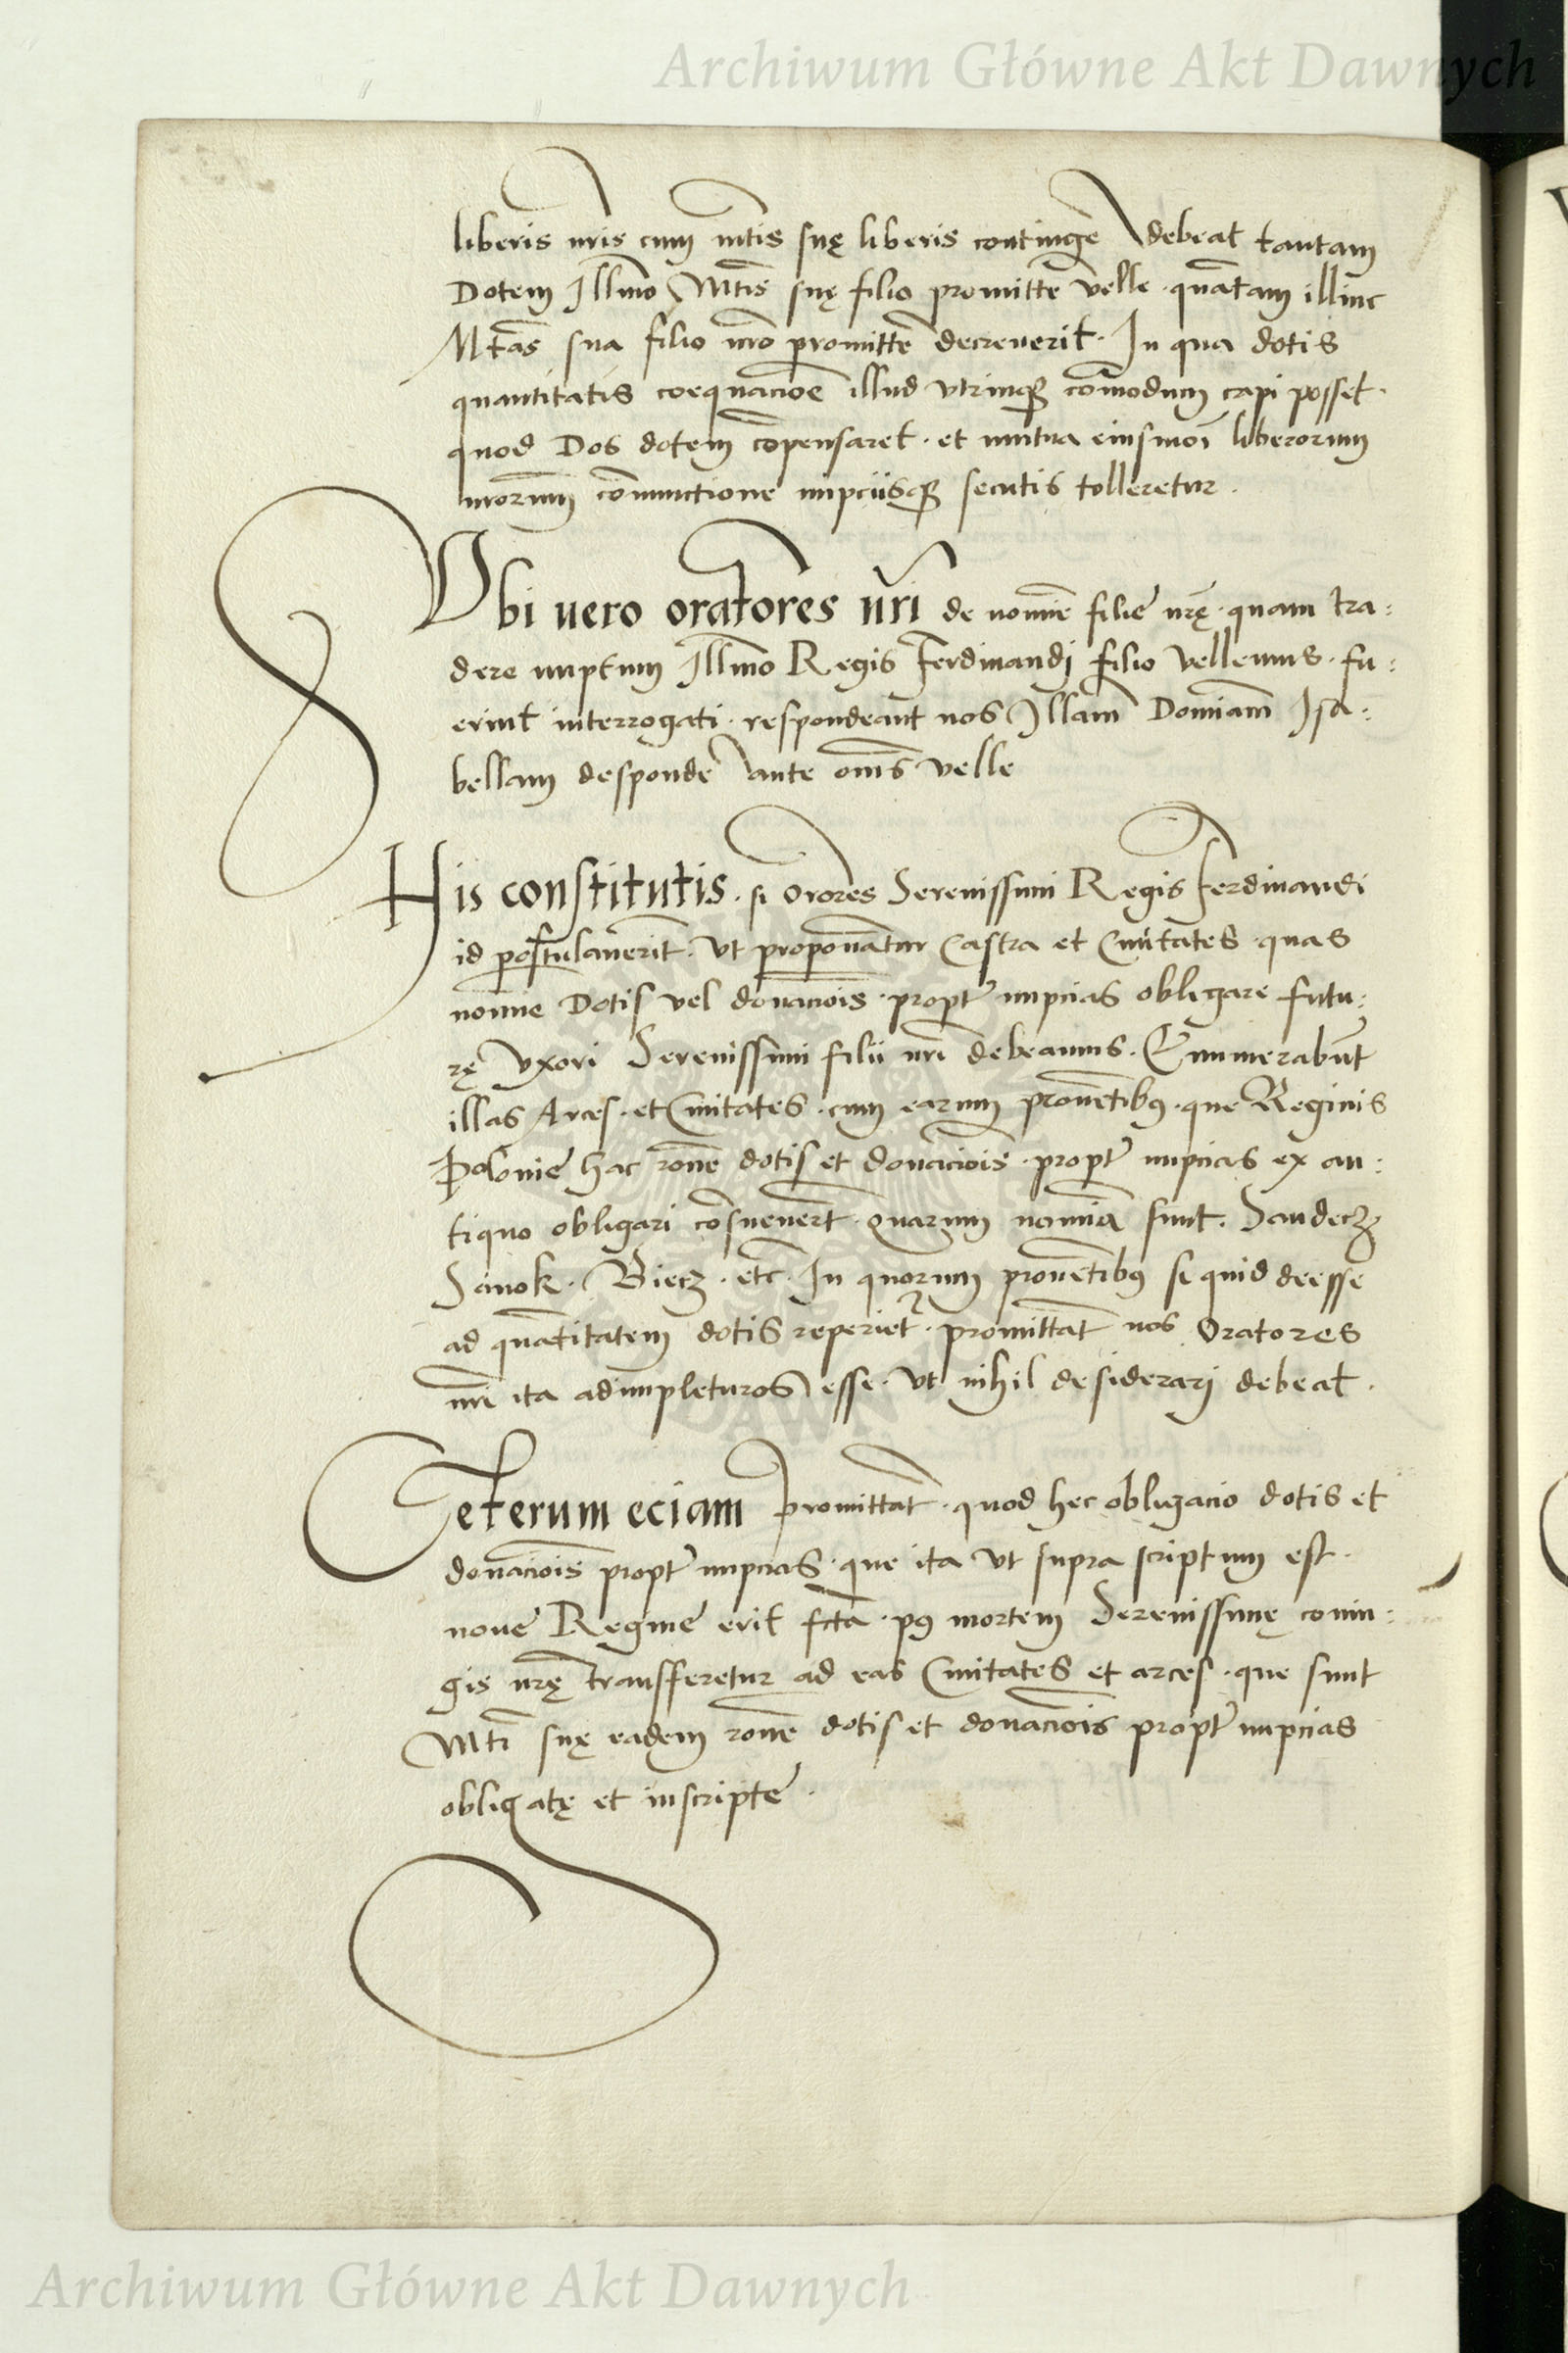 Archiwum Główne Akt Dawnych
liberis nr̃is cum mtis suę liberis contingẽ debeat tantam
Dotem Illmo Mtis suę filio promittẽ velle · quãtam illinc
Mtas sua filio nrõ promittẽ decreuerit · In qua dotis
quantitatis coequacioẽ illud vtrinqꝫ com̃odum capi posset ·
quod Dos dotem cõpensaret · et mutua eiusmoi liberorum
nrorum coniunctione nupciisqꝫ secutis tolleretur ·
Vbi uero oratores nr̃i de nomie filie nrę · quam tra:
dere nuptum Illmo Regis Ferdinandj filio vellemus · fu:
erint interrogati · respondeant nos Illam Domiam Isa:
bellam despondẽ ante om̃s velle
His constitutis · si Orores Serenissimi Regis Ferdinandi
id postulauerint · vt proponãtur Castra et Ciuitates quas
nomie Dotis vel donaciois · propt̃ nupcias obligare futu:
rę vxori Serenissimi filii nri debeamus · Enumerabũt
illas Arces · et Ciuitates · cum earum prouẽtibꝰ · que Reginis
Polonie hac rõne dotis et donaciois · propt̃ nupcias ex an:
tiquo obligari cõsueuer̃t · quarum nomia sunt · Sandecz
Sanok · Biecz · etc · In quorum prouẽtibꝰ si quid deesse
ad quãtitatem dotis reperiet̃ · promittãt nos Oratores
nri ita adimpleturos esse · vt nihil desiderarj debeat ·
Ceterum eciam promittãt · quod hec obligacio dotis et
donaciois propt̃ nupcias · que ita vt supra scriptum est ·
noue Regine erit fcta · pꝰ mortem Serenissimę coniu:
gis nrę transferetur ad eas Ciuitates et arces · que sunt
Mti suę eadem rõne dotis et donaciois propt̃ nupcias
obligatę et inscripte ·
Archiwum Główne Akt Dawnych